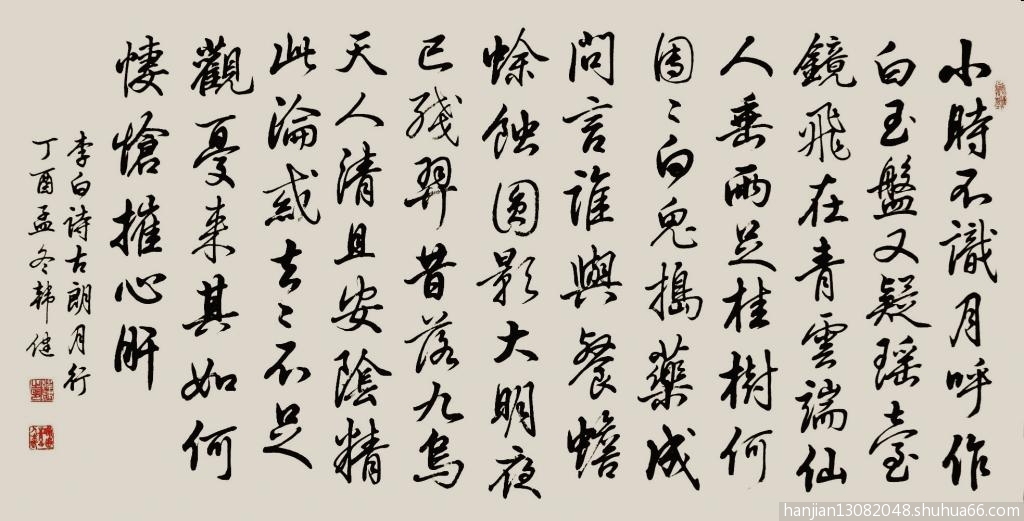 小時不識月呼作
白玉盤又疑瑶臺
鏡飛在青雲端仙
人垂兩足桂樹何
團〻白兔搗藥成
問言誰與餐蟾
蜍蝕圓影大明夜
已殘羿昔落九烏
天人清且安陰精
此淪惑去〻不足
觀憂来其如何
悽愴摧心肝
李白诗古朗月行
丁酉孟冬韩健
hanjian13082048.shuhua66.com